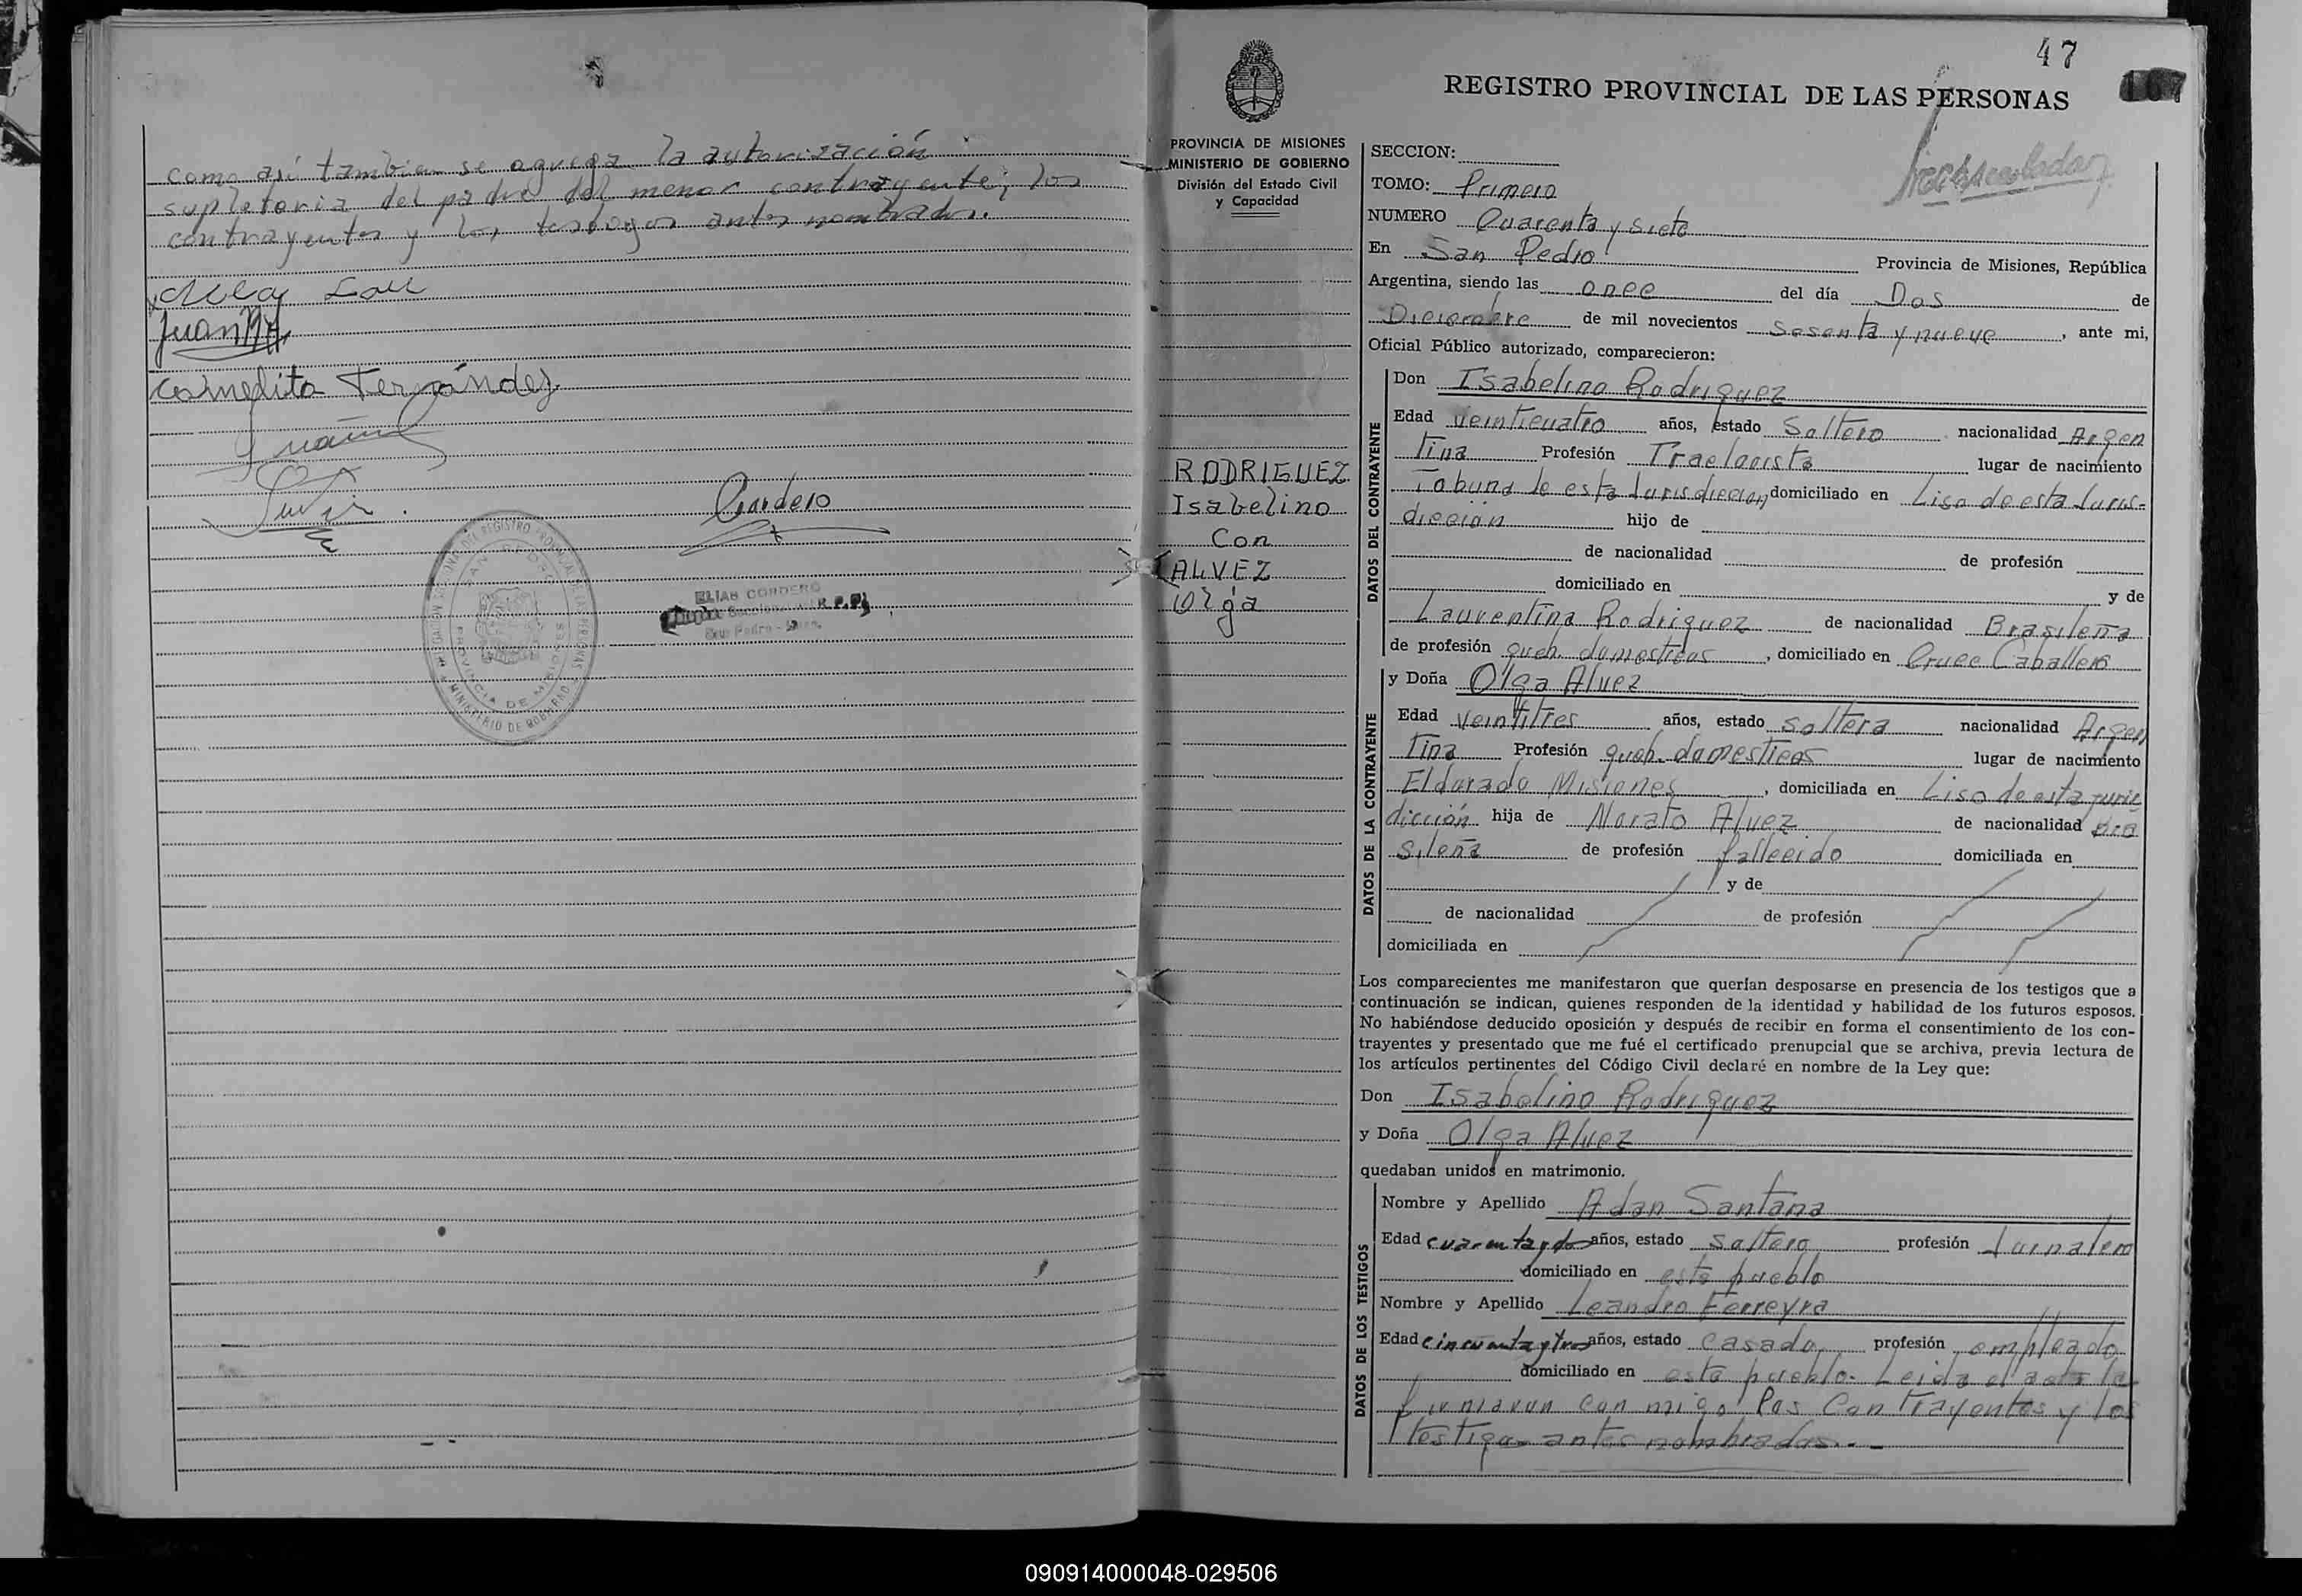 como así tambien se agrega la autorización
supletoria del padre del menor contrayente; los
contrayentes y los testigos antes nombrados.
Juan
Carmelita Fernández
Cordero
ELIAS CORDERO
R. P. P.
San Pedro - Mnes.
REGISTRO PROVINCIAL DE LAS PERSONAS
SAN PEDRO
PROVINCIA DE MISIONES
MINISTERIO DE GOBIERNO
47
REGISTRO PROVINCIAL DE LAS PERSONAS
107
PROVINCIA DE MISIONES
MINISTERIO DE GOBIERNO
División del Estado Civil
y Capacidad
RODRIGUEZ
Isabelino
Con
ALVEZ
Olga
SECCION:
TOMO: Primero
NUMERO Cuarenta y siete
En San Pedro Provincia de Misiones, República
Argentina, siendo las once del día Dos de
Diciembre de mil novecientos sesenta y nueve, ante mi,
Oficial Público autorizado, comparecieron:
DATOS DEL CONTRAYENTE
Don Isabelino Rodriguez
Edad veinticuatro años, estado Soltero nacionalidad Argen
tina Profesión Tractorista lugar de nacimiento
Tobuna de esta Jurisdiccion domiciliado en Liso de esta Juris-
dicción hijo de
de nacionalidad de profesión
domiciliado en y de
Laurentina Rodriguez de nacionalidad Brasileña
de profesión queh. domesticos, domiciliado en Cruce Caballero
DATOS DE LA CONTRAYENTE
y Doña Olga Alvez
Edad veintitres años, estado soltera nacionalidad Argen
tina Profesión queh. domesticos lugar de nacimiento
Eldorado Misiones, domiciliada en Liso de esta juris
dicción hija de Norato Alvez de nacionalidad Bra
sileña de profesión fallecido domiciliada en
y de
de nacionalidad de profesión
domiciliada en
Los comparecientes me manifestaron que querían desposarse en presencia de los testigos que a
continuación se indican, quienes responden de la identidad y habilidad de los futuros esposos.
No habiéndose deducido oposición y después de recibir en forma el consentimiento de los con-
trayentes y presentado que me fué el certificado prenupcial que se archiva, previa lectura de
los artículos pertinentes del Código Civil declaré en nombre de la Ley que:
Don Isabelino Rodriguez
y Doña Olga Alvez
quedaban unidos en matrimonio.
DATOS DE LOS TESTIGOS
Nombre y Apellido Adan Santana
Edad cuarenta y dos años, estado soltero profesión Jornalero
domiciliado en este pueblo
Nombre y Apellido Leandro Ferreyra
Edad cincuenta y tres años, estado casado profesión empleado
domiciliado en este pueblo. Leida el acta la
firmaron con migo los contrayentes y los
testigos antes nombrados.-
090914000048-029506